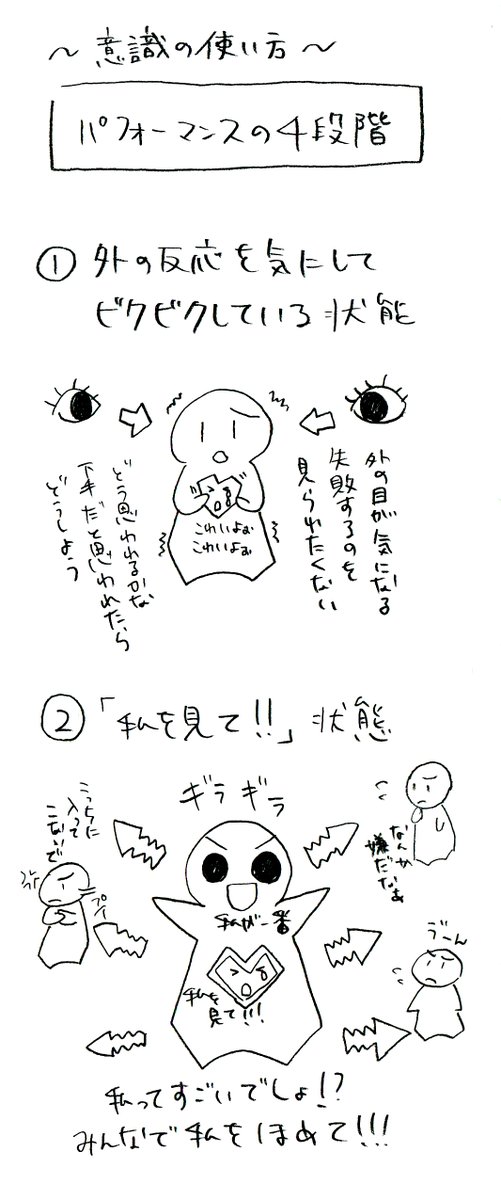 ～意識の使い方～
パフォーマンスの4段階
① 外の反応を気にして
ビクビクしている状態
外の目が気になる
失敗するのを
見られたくない
こわいよぉ
こわいよぉ
どう思われるかな
下手だと思われたら
どうしよう
② 「私を見て!!」状態
ギラギラ
なんか
嫌だなぁ
こっちに
入って
こないで
プイ
私が一番
私を
見て!!!
うーん
私ってすごいでしょ!?
みんなで私をほめて!!!